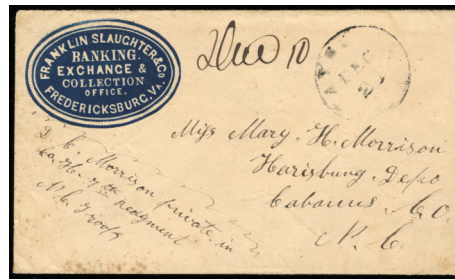 FRANKLIN SLAUGHTER & CO.
BANKING.
EXCHANGE &
COLLECTION
OFFICE.
FREDERICKSBURG, VA.
Due 10
DEC
Miss Mary. H. Morrison
Harisburg. Depo
Cabarrus. Co.
N. C.
Morrison private in
Co. H. 7th Reegment
N. C. Troops